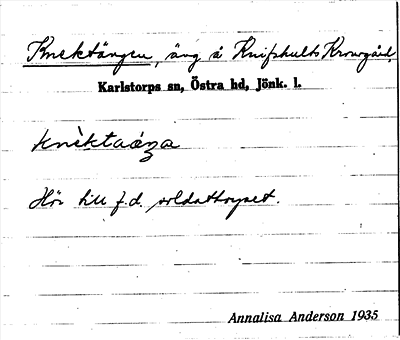 Knektängen, äng å Knifshults Kronogård,
Karlstorps sn, Östra hd, Jönk. l.
knèktaáŋa
Hör till f.d. soldattorpet.
Annalisa Anderson 1935